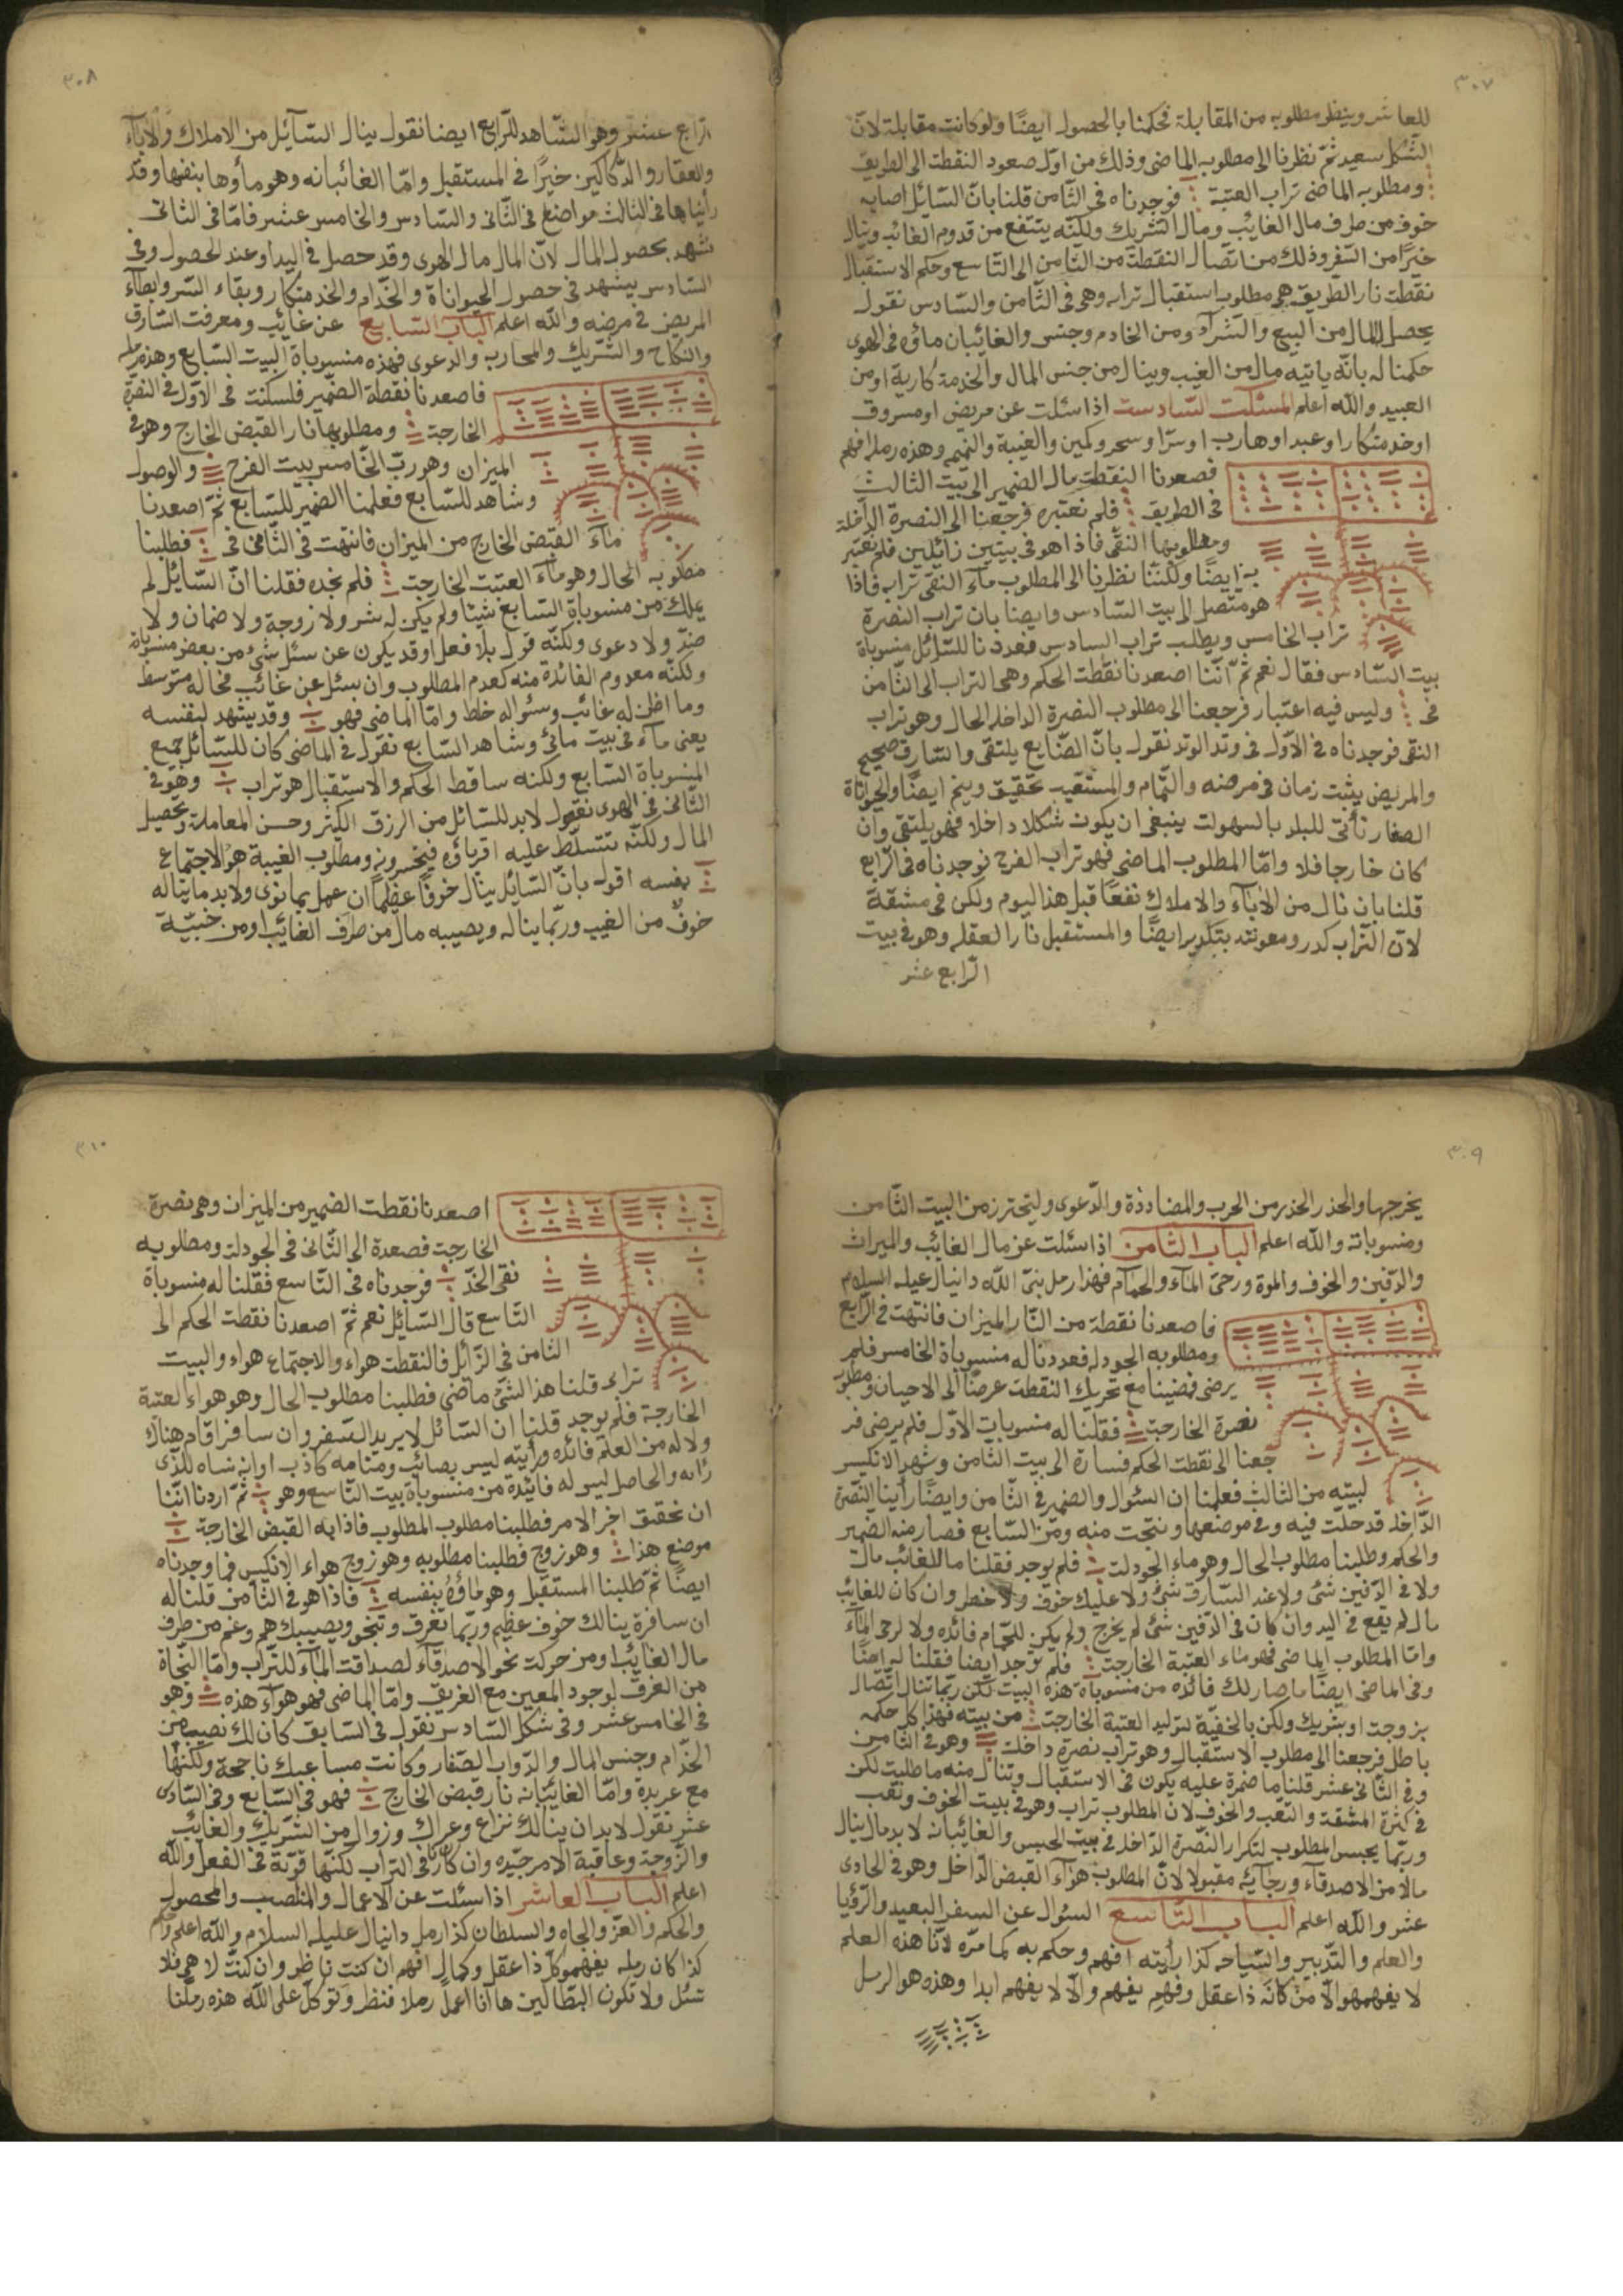 ٣٠٧
للعاشر وينظر مطلوبه من المقابلة فحكمنا بالحصول ايضًا ولو كانت مقابلة لانّ
الشكل سعيد ثمّ نظرنا الى مطلوبه الماضى وذلك من اوّل صعود النقطت الى الطريق
ومطلوبه الماضى تراب العتبة فوجدناه فى الثامن قلنا بانّ السّائل اصابه
خوف من طرف مال الغايب ومال الشريك ولكنّه ينتفع من قدوم الغائب وينال
خيرًا من السّفر وذلك من اتّصال النقطة من الثّامن الى التّاسع وحكم الاستقبال
نقطت نار الطريق هى مطلوب استقبال ترابه وهى فى الثّامن والسّادس نقول
يحصل المال من البيع والشرآء ومن الخادم وجنس والغائبان ماؤه فى الهوى
حكمنا له بانّه ياتيه مال من الغيب وينال من جنس المال والخدمة كارية او من
العبيد والله اعلم المسئلت السّادست اذا سئلت عن مريض او مسروق
او خدمتكار او عبد او هارب او سرّ او سحر وكمين والغيبة والنميم وهذه رمله افهم
فصعدنا النقطت مال الضمير الى بيت الثالث
فى الطريق فلم نعتبره فرجعنا الى النصرة الدّاخلة
ومطلوبها النقى فاذا هو فى بيتين زائلين فلم نعتبر
به ايضًا ولكنّنا نظرنا الى المطلوب مآء النقى تراب فاذا
هو متصل الى بيت السّادس وايضا بان تراب النصرة
تراب الخامس ويطلب تراب السادس فعددنا للسّائل منسوباة
بيت السّادس فقال نعم ثمّ انّنا اصعدنا نقطت الحكم وهى التراب الى الثّامن
فى وليس فيه اعتبار فرجعنا الى مطلوب النصرة الداخلة الحال وهو تراب
النقى فوجدناه فى الاوّل فى وتد الوتد نقول بانّ الضّايع يلتقى والسّارق صحيح
والمريض يثبت زمان فى مرضه والنّمّام والمستقيد تحقيق وينم ايضًا والحيواناة
الصغار تأتى للبلد بالسهولت ينبغى ان يكون شكلا داخلا فهو يلتقى وان
كان خارجا فلا وامّا المطلوب الماضى فهو تراب الفرح فوجدناه فى الرّابع
قلنا بان نال من الابآء والاملاك نفعًا قبل هذا اليوم ولكن فى مشقة
لانّ التّراب كدر ومعونته بتكدير ايضًا والمستقبل نار العقله وهو فى بيت
الرّابع عشر
٣٠٨
الرّابع عشر وهو الشّاهد للرّابع ايضا نقول ينال السّآئل من الاملاك والابآء
والعقار والدّكاكين خيرًا فى المستقبل وامّا الغائبانه وهو مأوها بنفسها وقد
رأيناها فى الثالث مواضع فى الثّانى والسّادس والخامس عشر فامّا فى الثانى
تشهد بحصول المال لانّ المال مال الهوى وقد حصل فى اليد او عند الحصول وفى
السّادس يشهد فى حصول الحيواناة والخدّام والخدمتكار وبقاء السّر وابطآء
المريض فى مرضه والله اعلم الباب السّابع عن غائب ومعرفت السّارق
والنكاح والشّريك والمحاربه والدعوى فهذه منسوباة البيت السّابع وهذه رمله
فاصعدنا نقطة الضّمير فلسكنت فى الاوّل فى النصرة
الخارجة ومطلوبها نار القبض الخارج وهو فى
الميزان وهو ربّ الخامس بيت الفرح والوصول
وشاهد للسّابع فعلمنا الضمير للسّابع ثمّ اصعدنا
مآء القبض الخارج من الميزان فانتهت فى الثّامن فى فطلبنا
مطلوبه الحال وهو مآء العتبت الخارجت فلم نجده فقلنا انّ السّائل لم
يملك من منسوباة السّابع شيئا ولم يكن له شر ولا زوجة ولا ضمان ولا
ضدّ ولا دعوى ولكنّه قول بلا فعل او قد يكون عن سئل شئ من بعض منسوباة
ولكنّه معدوم الفائدة منه كعدم المطلوب وان سئل عن غائب فحاله متوسط
وما اظنّ له غائب وسئواله خلط وامّا الماضى فهو وقد يشهد لبنفسه
يعنى مآء فى بيت مائى وشاهد السّابع نقول فى الماضى كان للسّائل جميع
المنسوباة السّابع ولكنه ساقط الحكم والاستقبال هو تراب وهو فى
الثّانى فى الهوى نقول لابد للسّائل من الرزق الكثير وحسن المعاملة وتحصيل
المال ولكنّه تتسلّط عليه اقرباؤه فيخسرونه ومطلوب الغيبة هو الاجتماع
بنفسه اقول بانّ السّائل ينال خوفًا عظيمًا ان عمل بما نوى ولابد ما يناله
خوفٌ من الغيب وربّما يناله ويصيبه مال من طرف الغائب او من خبيّة
٣٠٩
يخرجها والحذر الحذر من الحرب والمضاددة والدّعوى وليتحترز من البيت الثّامن
ومنسوباته والله اعلم الباب الثّامن اذا سئلت عن مال الغائب والميراث
والدّفين والخوف والموة ورحىّ المآء والحمّام فهذا رمل نبىّ الله دانيال عيله السلام
فاصعدنا نقطة من النّار الميزان فانتهت فى الرّابع
ومطلوبه الجودله فعددنا له منسوباة الخامس فلم
يرضى فمضينا مع تحريك النقطت عرضًا الى الاحيان ومطلوب
نصرة الخارجة فقلنا له منسوبات الاوّل فلم يرضى فر
جعنا الى نقطت الحكم فسارة الى بيت الثّامن وشهد الانكيس
لبيته من الثالث فعلمنا ان السئوال والضمير فى الثّامن وايضًا رأينا النّصرة
الدّاخلة قد حلّت فيه وفى موضعها ونتجت منه ومن السّابع فصار منه الضمير
والحكم وطلبنا مطلوب الحال وهو ماء الجودلت فلم يوجد فقلنا ما للغائب مالٌ
ولا فى الدّفين شئ ولا عند السّارق شئ ولا عليك خوف ولا خطر وان كان للغائب
مال لم يقع فى اليد وان كان فى الدّفين شئ لم يخرج ولم يكن للحمّام فائده ولا لرحى المآء
وامّا المطلوب الماضى فهو ماء العتبة الخارجت فلم نوجد ايضا فقلنا له ايضًا
وفى الماضى ايضًا ما صار لك فائده من منسوباة هذه البيت لكن ربّما تنال اتّصال
بزوجت او بشريك ولكن بالخفيّة لتوليد العتبة الخارجت من بيته فهذا كل حكمه
باطل فرجعنا الى مطلوب الاستقبال وهو تراب نصرة داخلت وهو فى الثّامن
وفى الثّانى عشر قلنا ما ضمرة عليه يكون فى الاستقبال وتنال منه ما طلبت لكن
فى كثرة المشقة والتعب والخوف لانّ المطلوب تراب وهو فى بيت الخوف وتعب
وربّما يحبس المطلوب لتكرار النّصرة الدّاخل فى بيت الحبس والغائبانه لابد مال ينال
مالًا من الاصدقآء ورجآئه مقبولا لانّ المطلوب هوآء القبض الدّاخل وهو فى الحادى
عشر والله اعلم الباب التّاسع السّوال عن السفر البعيد والرّؤيا
والعلم والتّدبير والسّياحه كذا رأيته افهم وحكم به كما مرّه لانّنا هذه العلم
لا يفهمهوا الّا من كانه ذا عقل وفهم يفهم والّا لا يفهم ابدا وهذه هو الرمل
٣١٠
اصعدنا نقطت الضمير من الميزان وهى نصرة
الخارجت فصعدة الى الثّانى فى الجودلت ومطلوبه
نقى الخدّ فوجدناه فى التّاسع فقلنا له منسوباة
التّاسع قال السّائل نعم ثمّ اصعدنا نقطت الحكم الى
الثامن فى الزّائل فالنقطت هواء والاجتماع هواء والبيت
تراب قلنا هذا الشئ ماضى فطلبنا مطلوب الحال وهو هواء العتبة
الخارجة فلم يوجد قلنا ان السّائل لا يريد السّفر وان سافر اقام هناك
ولا له من العلم فائده ورأيته ليس بصائب ومنامه كاذب او انه نساه للّذى
رآه والحاصل ليس له فائدة من منسوباة بيت التّاسع وهو ثمّ اردنا انّنا
ان نحقق اخر الامر فطلبنا مطلوب المطلوب فاذا به القبض الخارجة
موضع هذا وهو زوج فطلبنا مطلوبه وهو زوج هواء الانكيس فما وجدناه
ايضًا ثمّ طلبنا المستقبل وهو ماؤهُ بنفسه فاذا هو فى الثّامن قلنا له
ان سافرة ينالك خوف عظيم وربّما تغرق وتنجو ويصيبك همّ وغم من طرف
مال الغائب او من حركت نحو الاصدقآء لصداقت المآء للتّراب وامّا النّجاة
من الغرق لوجود المعين مع الغريق وامّا الماضى فهو هوآء هذه وهو
فى الخامس عشر وفى شكل السّادس نقول فى السّابق كان لك نصيب من
الخدّام وجنس المال والدّواب الصّغار وكانت مساعيك ناجحة ولكنّها
مع عربدة وامّا الغائبانه نار قبض الخارج فهو فى السّابع وفى السّادس
عشر نقول لابد ان ينالك نزاع وعراك وزوال من الشّريك والغائب
والزّوجة وعاقبة الامر جيّده وان كان فى التراب لكنّها قوّته فى الفعل والله
اعلم الباب العاشر اذا سئلت عن الاعمال والمنصب والمحصول
والحكم والعزّ والجاه والسلطان كذا رمل دانيال عليه السلام والله اعلم
كذا كان رمله يفهمهوا كلّ ذا عقل وكمال افهم ان كنت ناظر وان كنت لا هم فلا
تسئل ولا تكون البطّالين ها انا اعمل رملا فنظر وتوكّل على الله هذه رملنا